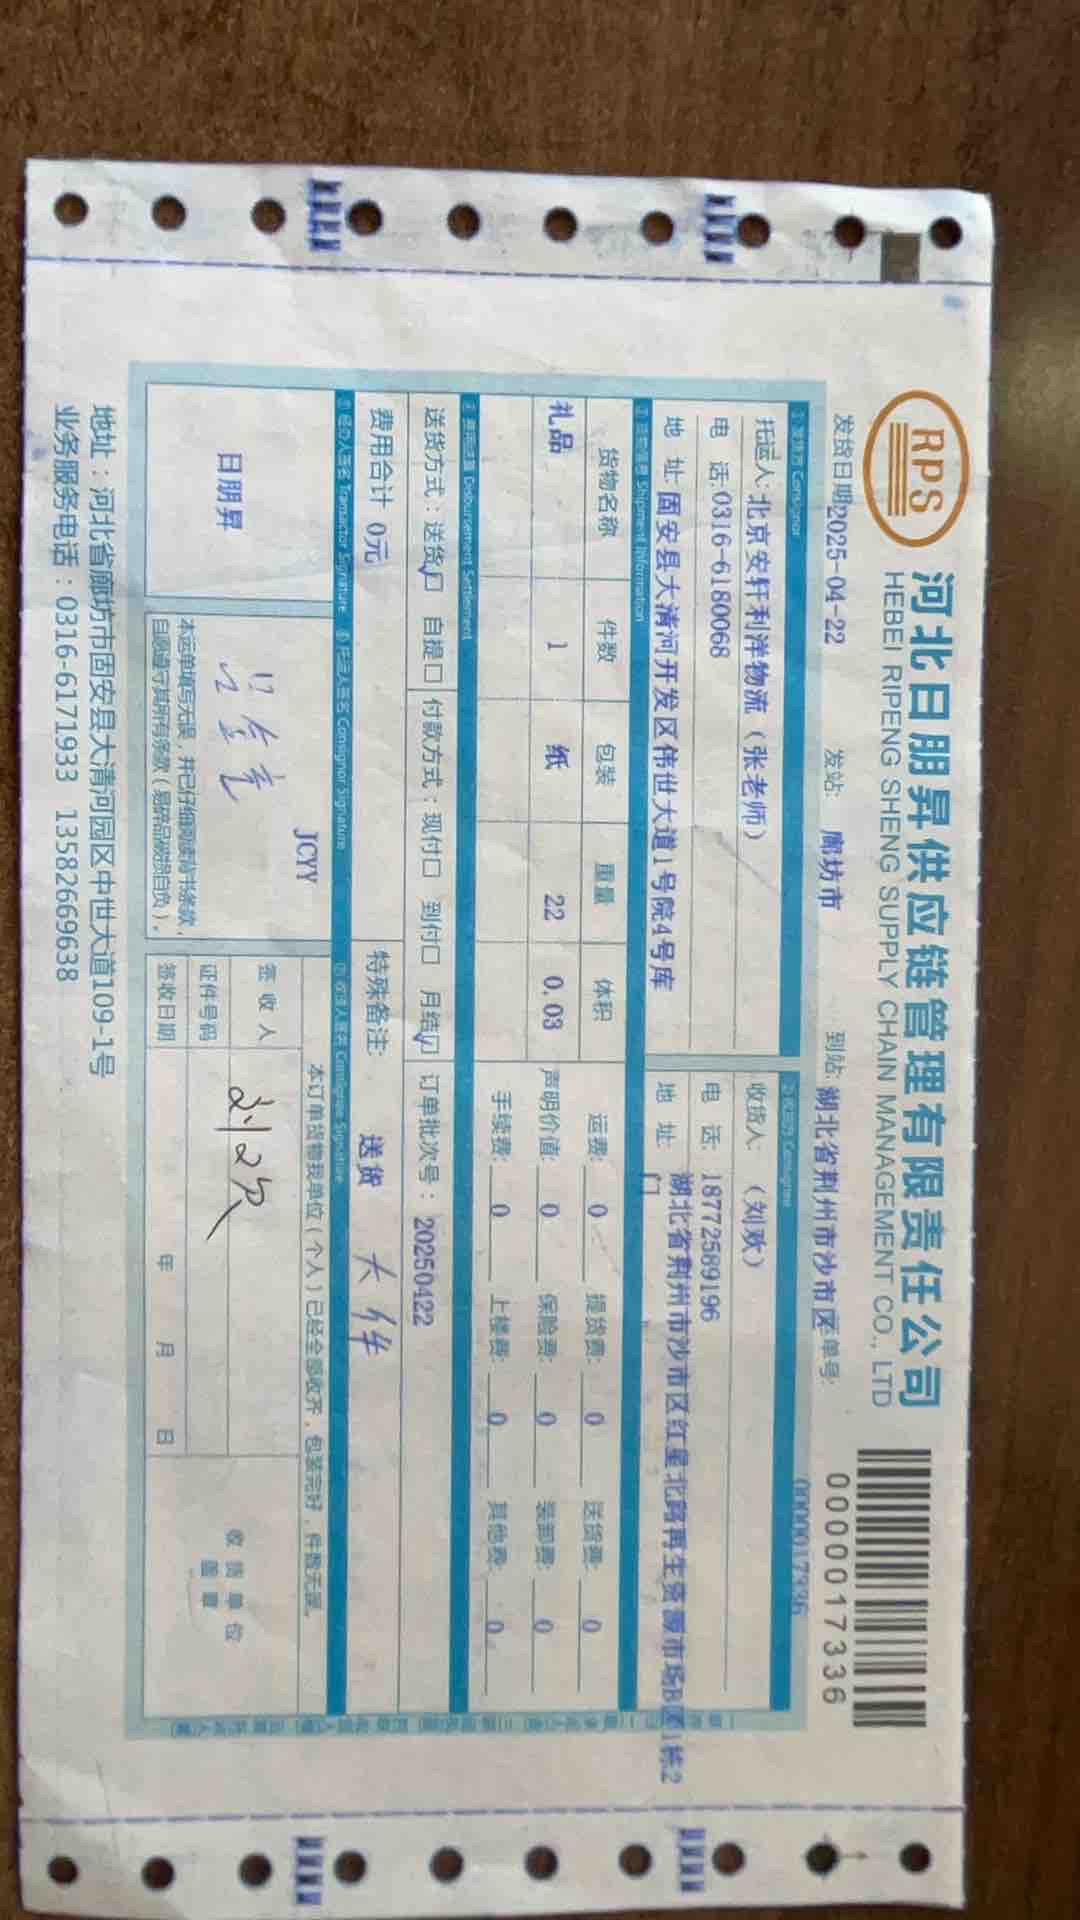 RPS
河北日朋昇供应链管理有限责任公司
HEBEI RIPENG SHENG SUPPLY CHAIN MANAGEMENT CO., LTD
0000017336
发货日期2025-04-22 发站: 廊坊市 到站: 湖北省荆州市沙市区 单号: 0000017336
①发货方 Consignor ②收货方 Consignee
托运人: 北京安轩利洋物流（张老师） 收货人: （刘欢）
电 话:0316-6180068 电 话: 18772589196
地 址:固安县大清河开发区伟世大道1号院4号库 地 址: 湖北省荆州市沙市区红星北路再生资源市场B区1栋2
门
Shipment Information
货物名称 件数 包装 重量 体积 运费: 0 提货费: 0 送货费: 0
礼品 1 纸 22 0.03 声明价值: 0 保险费: 0 装卸费: 0
手续费: 0 上楼费: 0 其他费: 0
④费用结算 Disbursement Settlement
送货方式：送货☑ 自提□ 付款方式：现付□ 到付□ 月结☑ 订单批次号：20250422
费用合计 0元 特殊备注: 送货 大件
⑤经办人签名 Transactor Signature ⑥托运人签名 Consignor Signature ⑦收货人签名 Consignee Signature
JCYY 本订单货物我单位（个人）已经全部收齐，包装完好，件数无误。
日朋昇
签 收 人 刘欢
证件号码
签收日期 年 月 日
收 货 单 位
盖 章
本运单填写无误，并已仔细阅读背书条款，
自愿遵守其所有条款（易碎品破损自负）。
地址：河北省廊坊市固安县大清河园区中世大道109-1号
业务服务电话：0316-6171933 13582669638